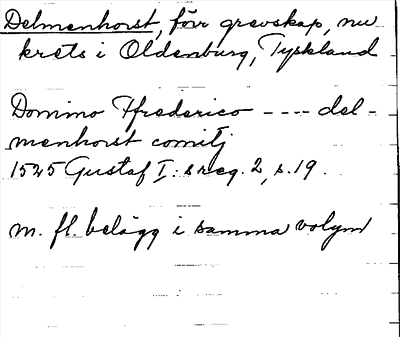 Delmenhorst, förr grevskap, nu
krets i Oldenburg, Tyskland
Domino Ffrederico ---- del-
menhorst comitj
1525 Gustaf I: s reg. 2, s. 19.
m. fl. belägg i samma volym